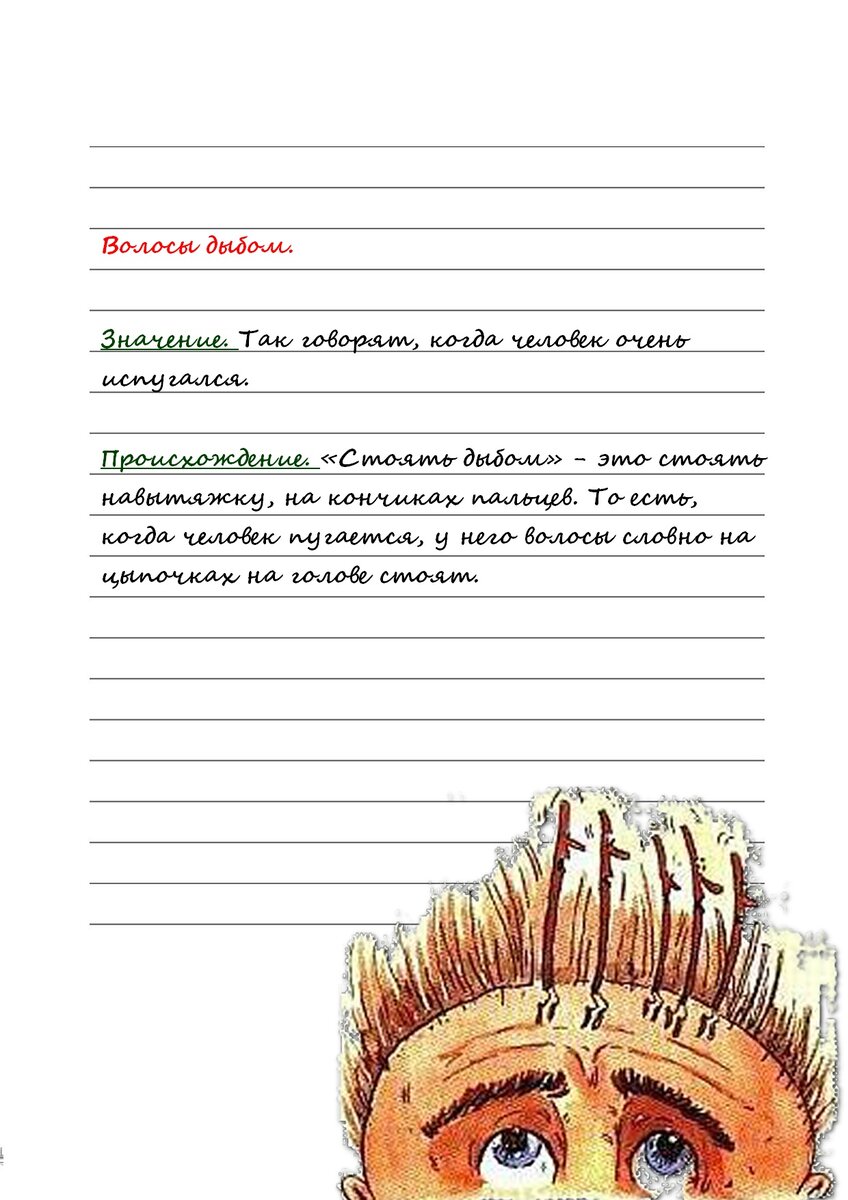 Волосы дыбом.
Значение. Так говорят, когда человек очень
испугался.
Происхождение. «Стоять дыбом» - это стоять
навытяжку, на кончиках пальцев. То есть,
когда человек пугается, у него волосы словно на
цыпочках на голове стоят.